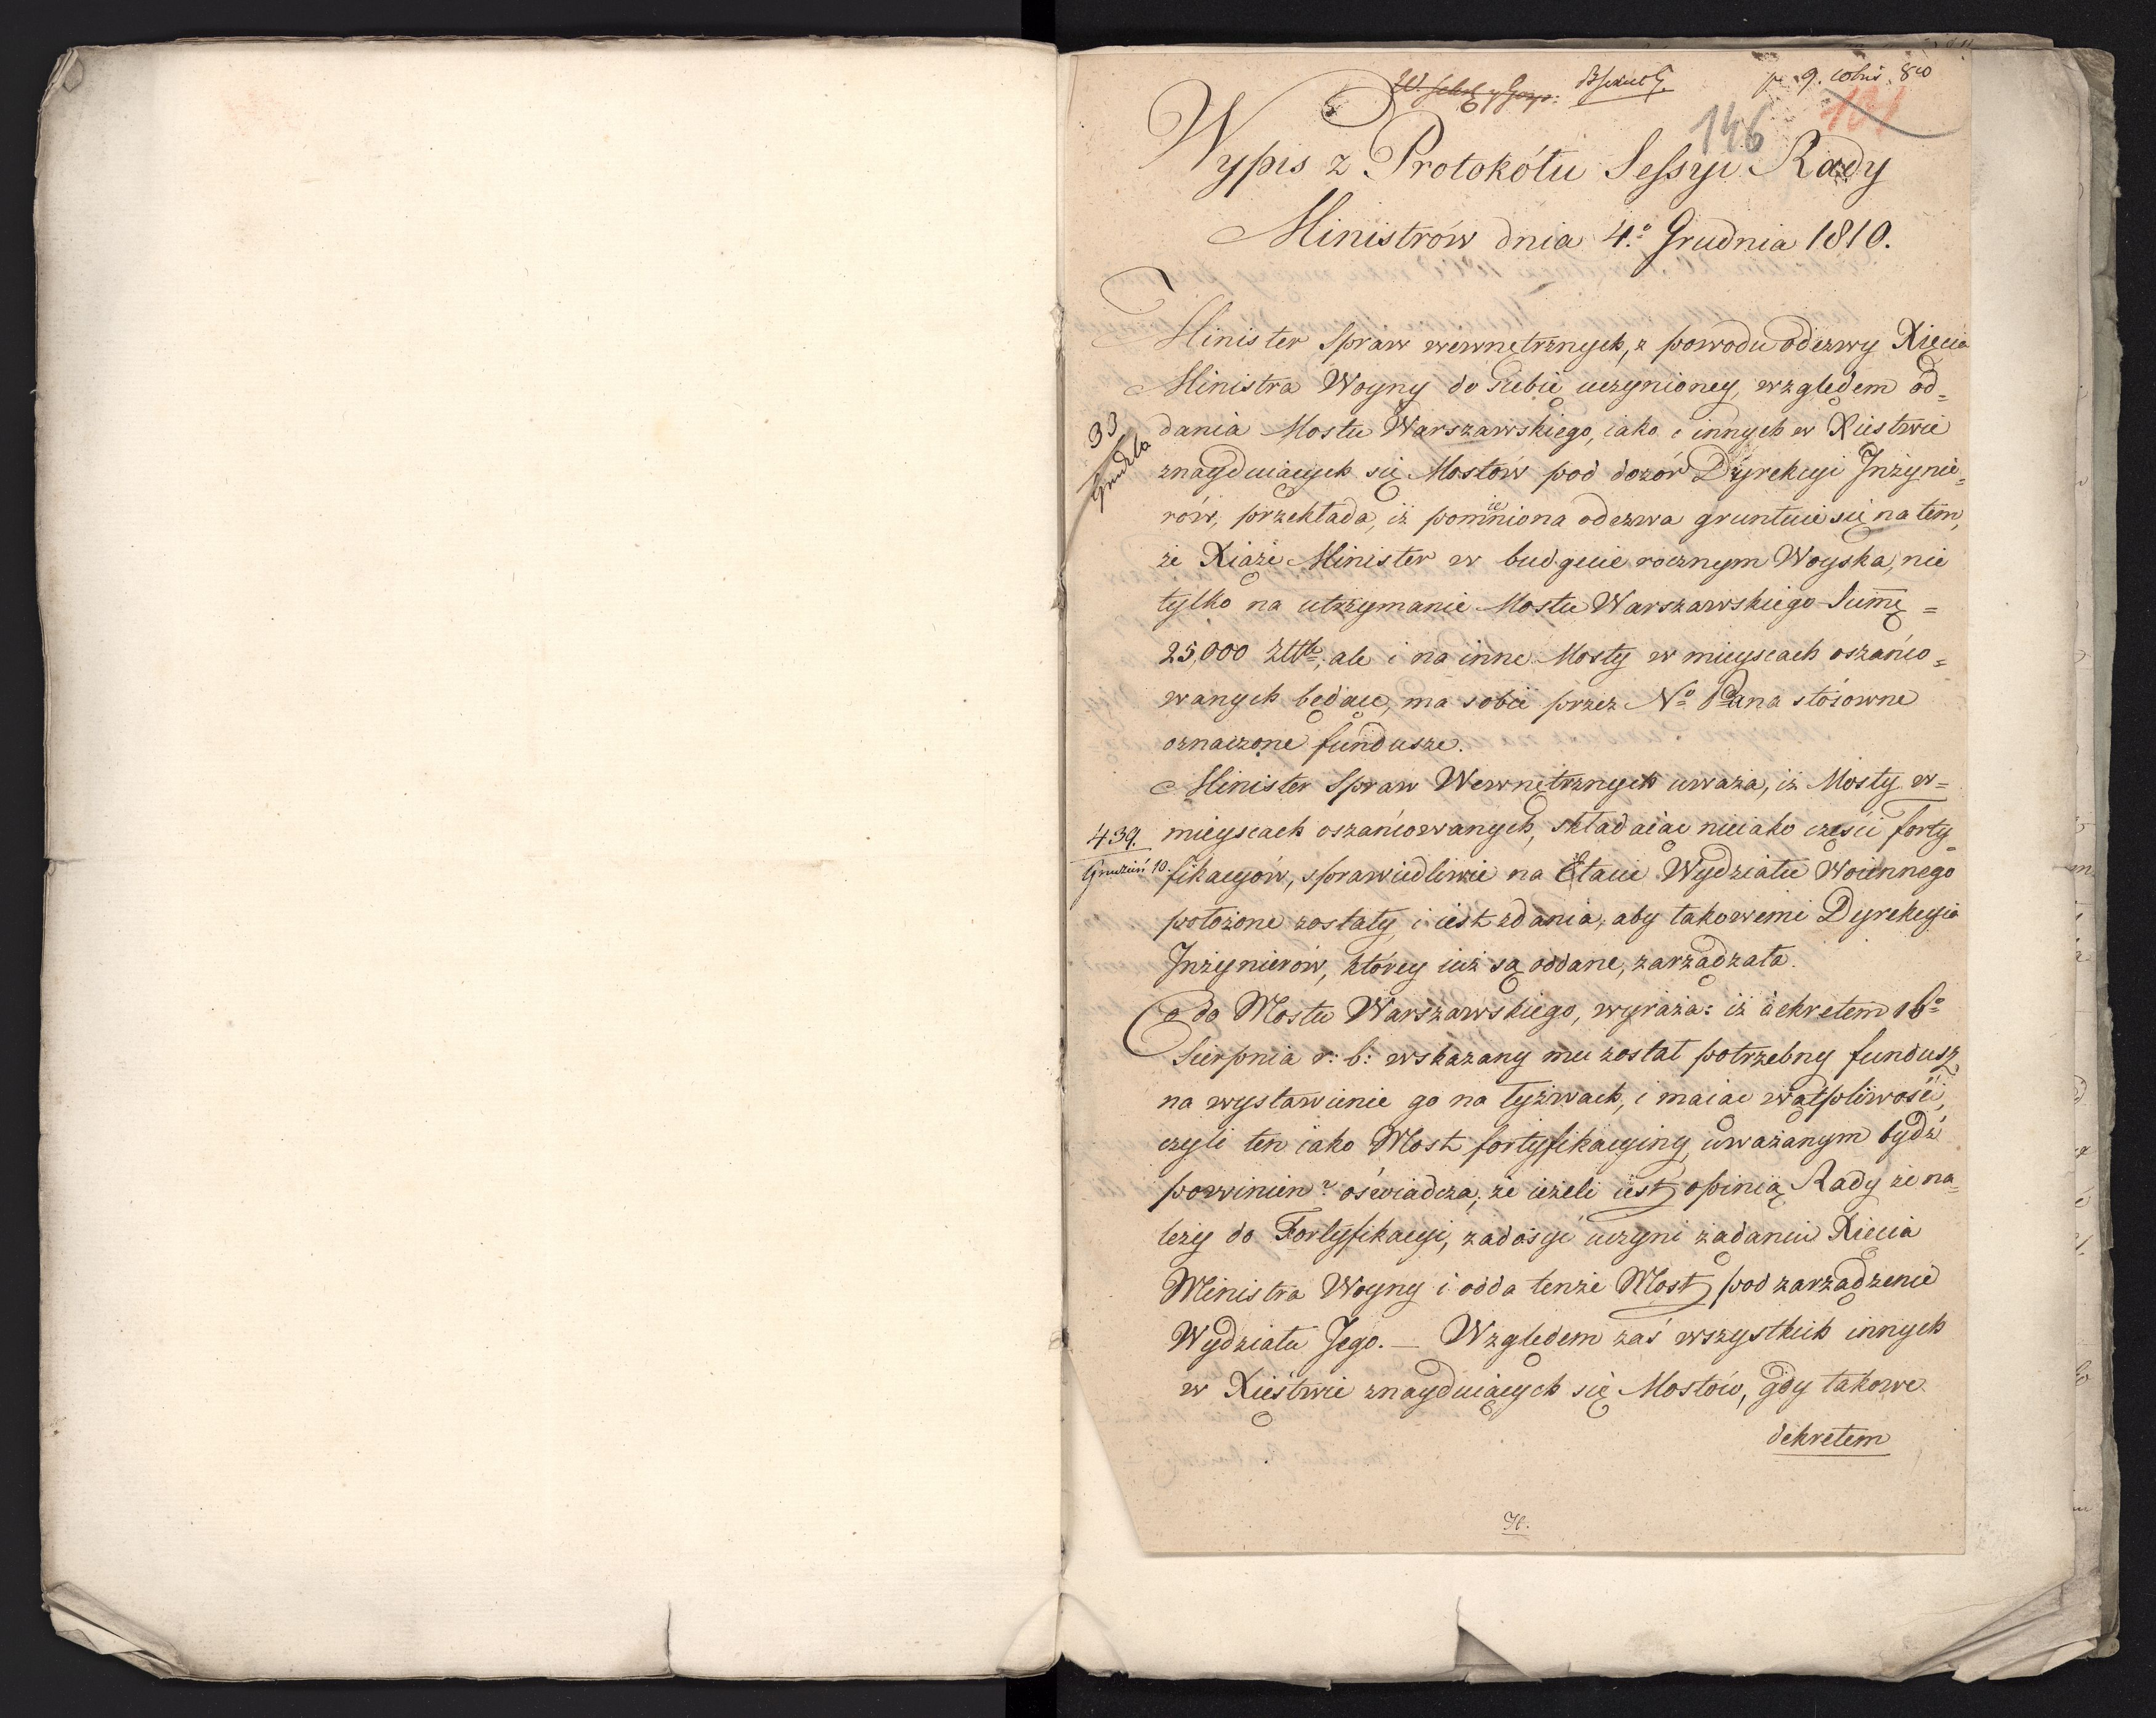 pr 9. Xbris 810
146
101
Wypis z Protokółu Sessyi Rady
Ministrów dnia 4.º Grudnia 1810.
Minister Spraw wewnętrznych, z powodu odezwy Xięcia
Ministra Woyny do siebie uczynioney, względem od=
33
dania Mostu Warszawskiego, iako i innych w Xięstwie
znayduiących się Mostów pod dozór Dyrekcyi Jnżynie=
rów, przekłada, iż pomieniona odezwa gruntuie się na tem,
że Xiąże Minister w budgecie rocznym Woyska, nie
tylko na utrzymanie Mostu Warszawskiego Summę =
25,000 Złt; ale i na inne Mosty w mieyscach oszańco=
wanych będące, ma sobie przez Nº Pana stosowne
oznaczone fundusze.
Minister Spraw Wewnętrznych uważa, iż Mosty w=
439.
Grudzień 10.
mieyscach oszańcowanych, składaiąc nieiako części forty=
fikacyów, sprawiedliwie na Etacie Wydziału Woiennego
położone zostały, i iest zdania, aby takowemi Dyrekcyia
Jnżynierów, którey iuż są oddane, zarządzała.
Co do Mostu Warszawskiego, wyraża: iż dekretem 16º
Sierpnia r: b: wskazany mu został potrzebny fundusz
na wystawienie go na łyżwach, i maiąc wątpliwość,
czyli ten iako Most fortyfikacyiny uważanym bydź
powinien? oświadcza, że ieżeli iest opinią Rady że na=
leży do Fortyfikacyi, zadosyć uczyni żądaniu Xięcia
Ministra Woyny i odda tenże Most pod zarządzenie
Wydziału Jego. — Względem zaś wszystkich innych
w Xięstwie znayduiących się Mostów, gdy takowe
dekretem